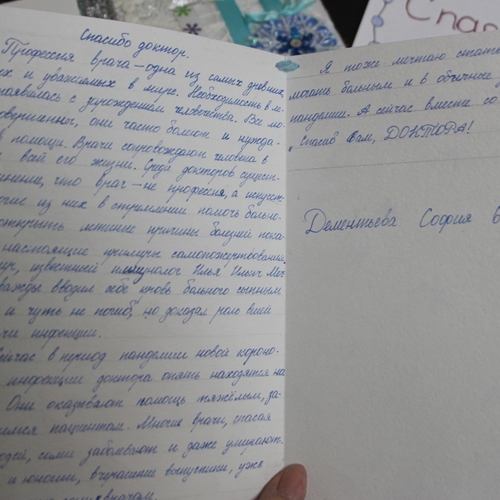 Спасибо доктор.
Профессия врача – одна из самых древних,
х и уважаемых в мире. Необходимость в ле-
появилась с зарождением человечества. Все
они часто болеют и нужда-
помощи. Врачи сопровождают человека в
всей его жизни. Среди докторов сущест-
мнение, что врач – не профессия, а искусст-
из них в стремлении помочь больно-
открыть истинные причины болезней пока-
настоящие примеры самопожертвования.
известный Илья Ильич Меч
дважды вводил себе кровь больного сыпным
и чуть не погиб, но доказал роль вшей
чи инфекции.
сейчас в период пандемии новой корона-
инфекции доктора опять находятся на
Они оказывают помощь тяжёлым, за-
имся пациентам. Многие врачи, спасая
людей, сами заболевают и даже умирают.
и юноши, вчерашние выпускники, уже
врачам.
Я тоже мечтаю стать
могать больным и в обычные
пандемии. А сейчас вместе со
„Спасибо Вам, ДОКТОРА!
Дементьева София 6
Спас